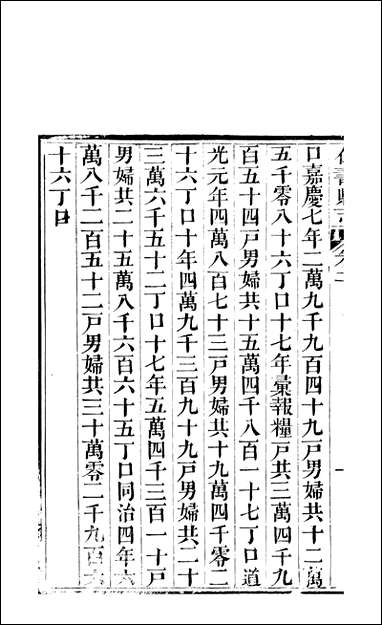 口嘉慶七年二萬九千九百四十九戸男婦共十二萬
五千零八十六丁口十七年彙報糧戸共三萬四千九
百五十四戸男婦共十五萬四千八百一十七丁口道
光元年四萬八百七十三戸男婦共十九萬四千零二
十六丁口十年四萬九千三百九十九戸男婦共二十
三萬六千五十二丁口十七年五萬四千三百一十戸
男婦共二十五萬八千六百六十五丁口同治四年六
萬八千二百五十二戸男婦共三十萬零二千九百六
十六丁口